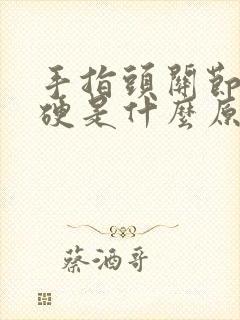 手指頭關節
硬是什麼原
蔡酒哥